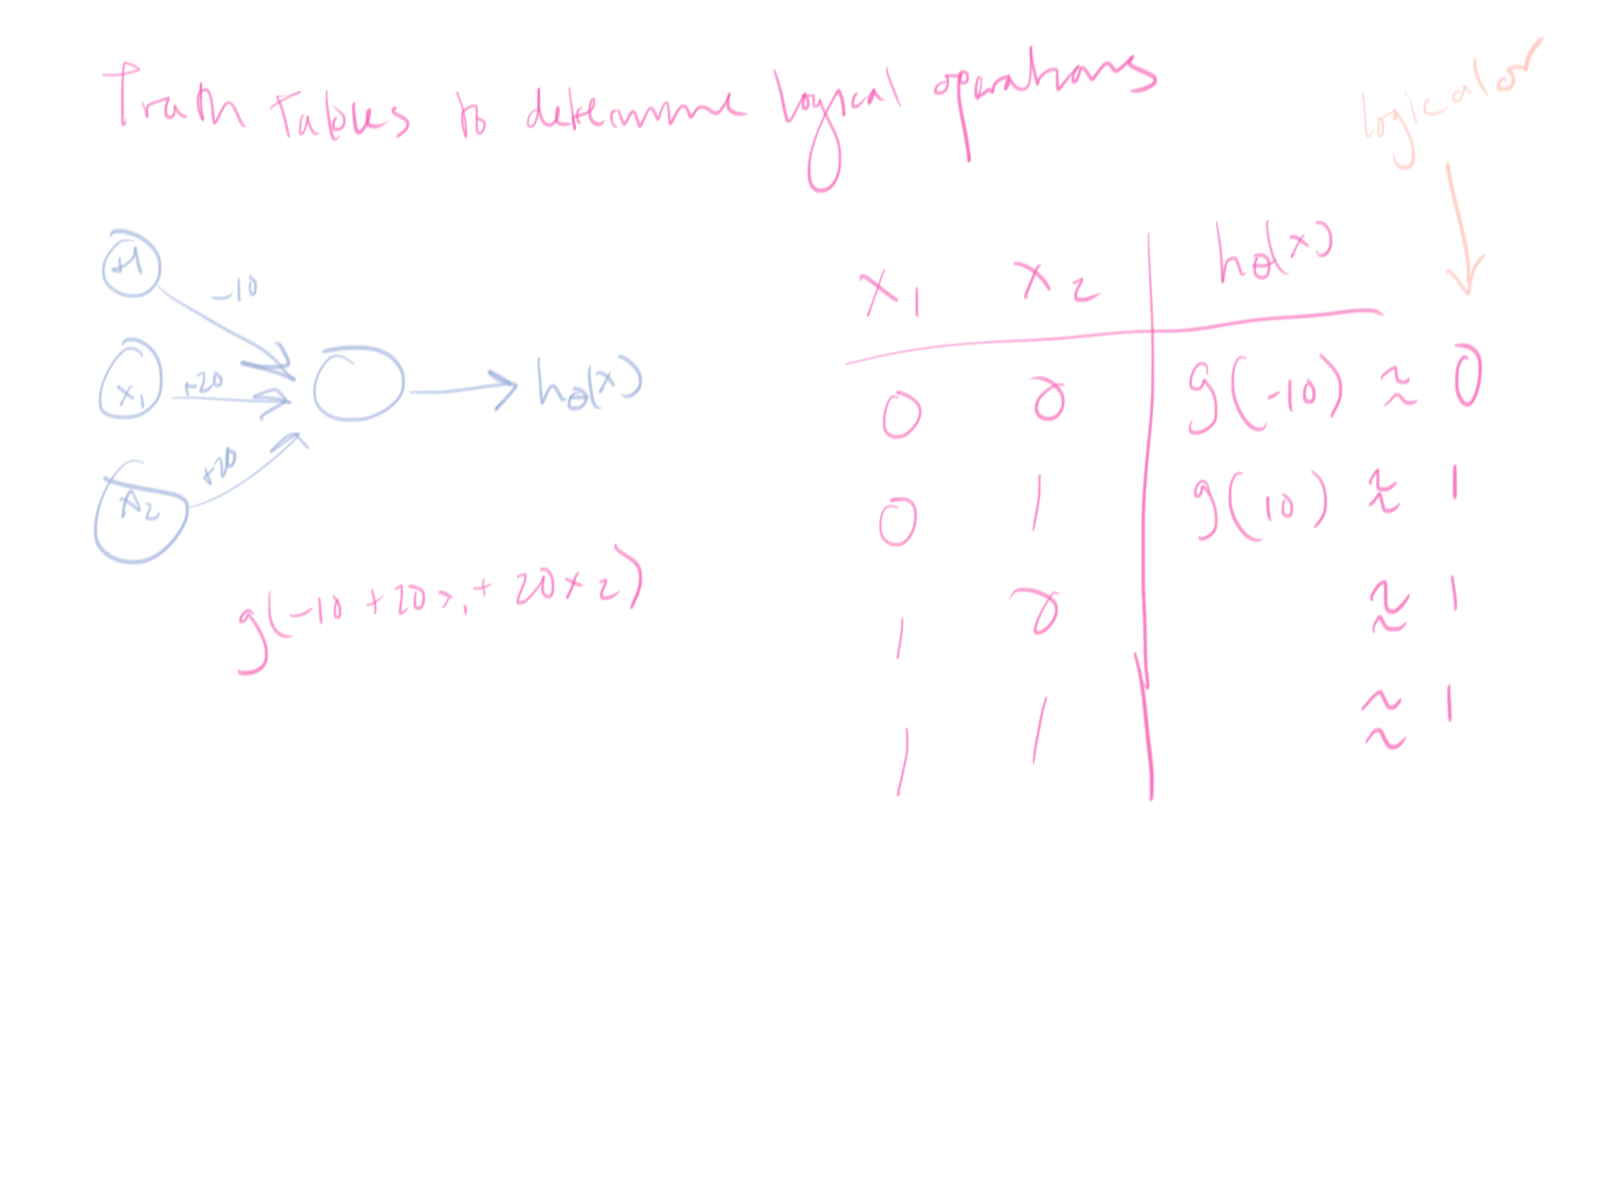 Truth Tables to determine logical operations
logical or
+1
-10
x1
+20
x2
+20
hθ(x)
g(-10 + 20x1 + 20x2)
x1 x2 hθ(x)
0 0 g(-10) ≈ 0
0 1 g(10) ≈ 1
1 0 ≈ 1
1 1 ≈ 1